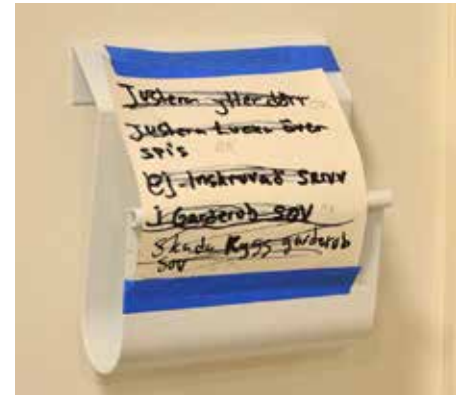 Justera ytterdörr
Justera Lucka över
spis
Ej-Inskruvad skruv
i Garderob SOV
Skada Rygg garderob
SOV